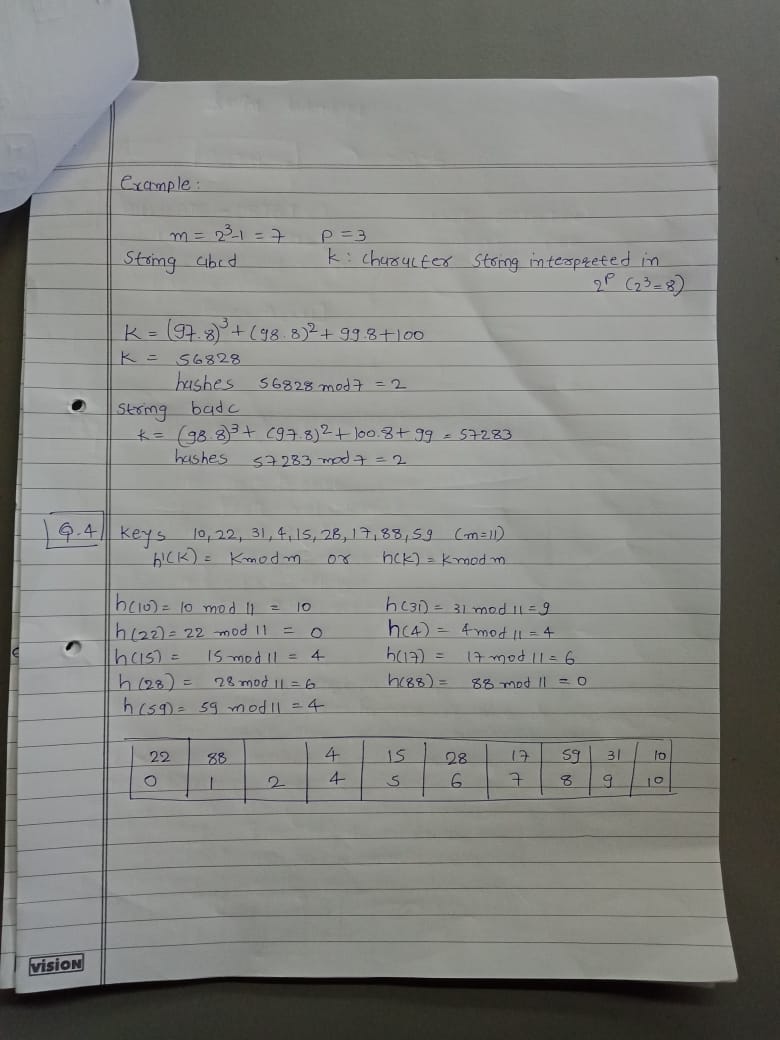 Example:
m = 2³-1 = 7 P = 3
String abcd k: character string interpreted in
2ᴾ (2³=8)
K = (97.8)³ + (98.8)² + 99.8 + 100
K = 56828
hashes 56828 mod 7 = 2
String badc
k = (98.8)³ + (97.8)² + 100.8 + 99 = 57283
hashes 57283 mod 7 = 2
Q.4 Keys 10, 22, 31, 4, 15, 28, 17, 88, 59 (m=11)
h'(K) = K mod m or h(k) = k mod m
h(10) = 10 mod 11 = 10 h(31) = 31 mod 11 = 9
h(22) = 22 mod 11 = 0 h(4) = 4 mod 11 = 4
h(15) = 15 mod 11 = 4 h(17) = 17 mod 11 = 6
h(28) = 28 mod 11 = 6 h(88) = 88 mod 11 = 0
h(59) = 59 mod 11 = 4
22 88 4 15 28 17 59 31 10
0 1 2 4 5 6 7 8 9 10
vision